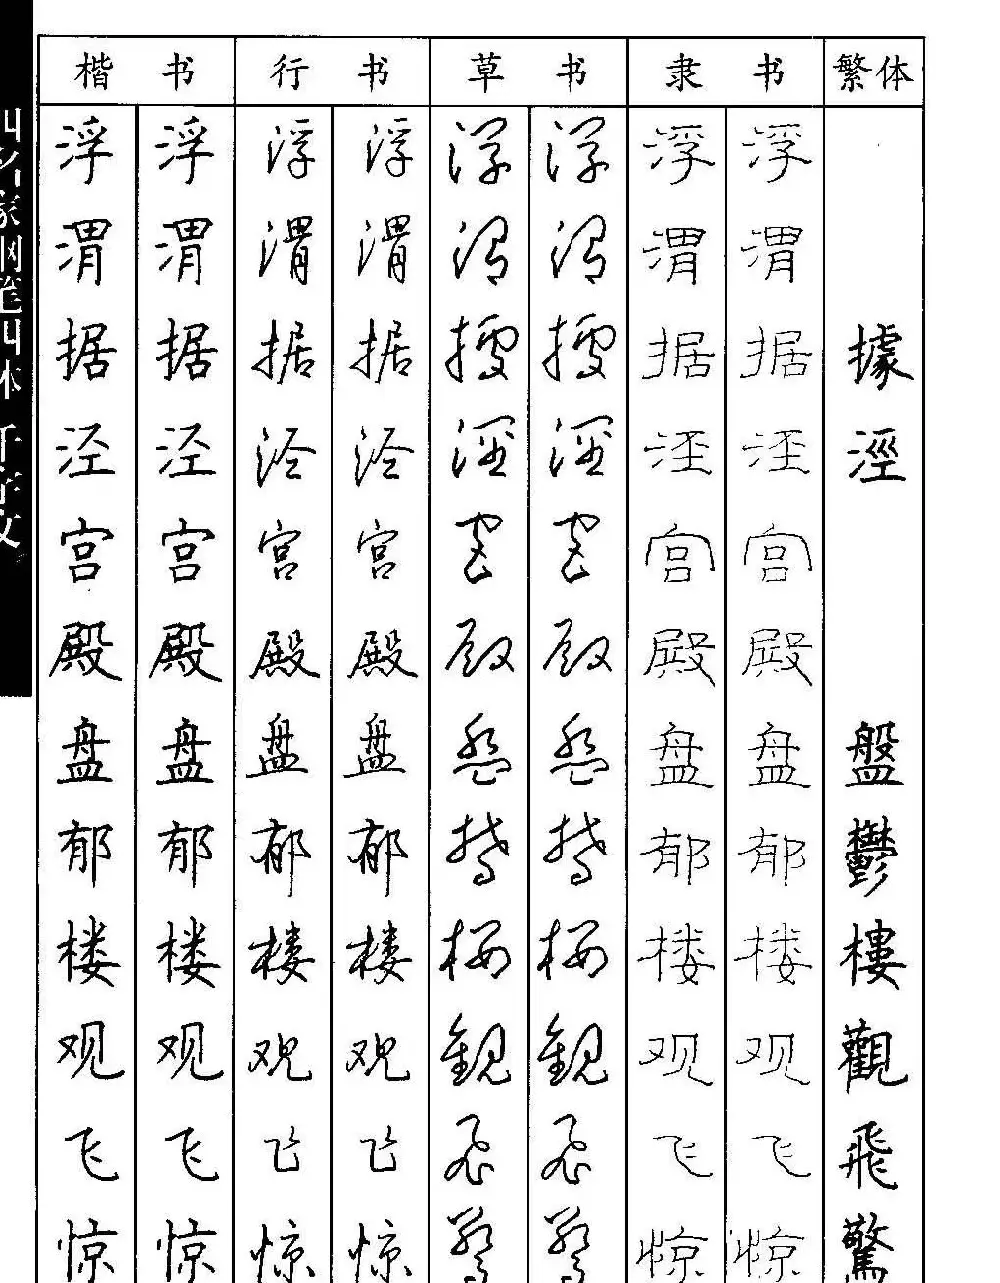 楷书 行书 草书 隶书 繁体
浮 浮 浮 浮 浮 浮 浮 浮
渭 渭 渭 渭 渭 渭 渭 渭
据 据 据 据 據 據 据 据 據
泾 泾 泾 泾 涇 涇 泾 泾 涇
宫 宫 宫 宫 宫 宫 宫 宫
殿 殿 殿 殿 殿 殿 殿 殿
盘 盘 盘 盘 盘 盘 盘 盘 盤
郁 郁 郁 郁 鬱 鬱 郁 郁 鬱
楼 楼 楼 楼 樓 樓 楼 楼 樓
观 观 观 观 觀 觀 观 观 觀
飞 飞 飞 飞 飛 飛 飞 飞 飛
惊 惊 惊 惊 驚 驚 惊 惊 驚
四名家钢笔四体千字文